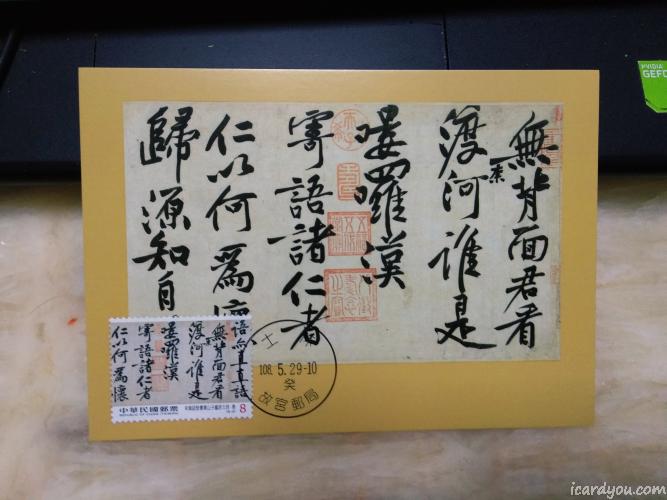 無背面君看
渡柰河誰是
嘍羅漢
寄語諸仁者
仁以何爲
歸源知自
無背面君看
渡柰河誰是
嘍羅漢
寄語諸仁者
仁以何爲懷
中華民國郵票
REPUBLIC OF CHINA (TAIWAN)
8
士
108. 5.29-10
癸
故宮郵局
NVIDIA
GEFO
icardyou.com